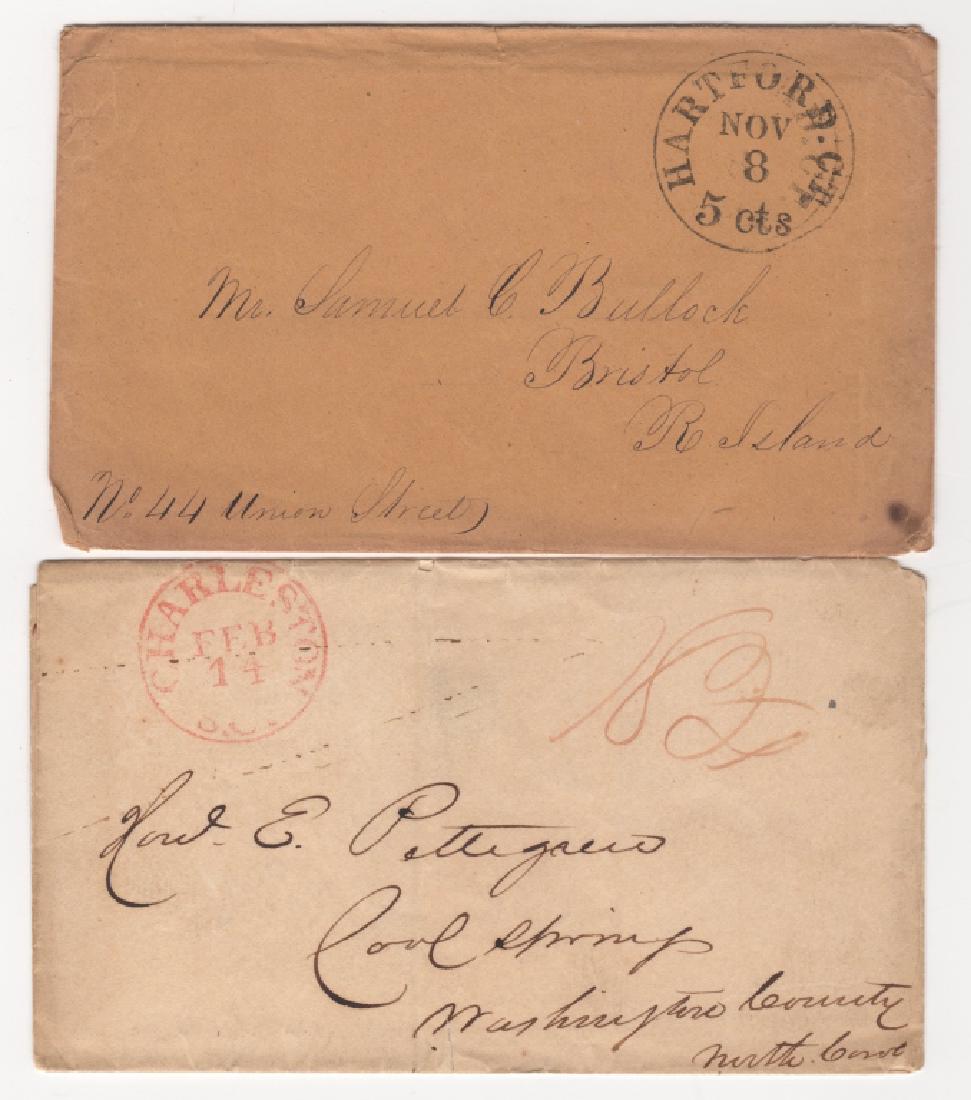 HARTFORD. CT.
NOV
8
5 cts
Mr. Samuel C. Bullock
Bristol
R. Island
No. 44 Union Street
CHARLESTON
FEB
14
S.C.
18¾
Hond. E. Pettegrew
Cool Spring
Washington County
North Caro